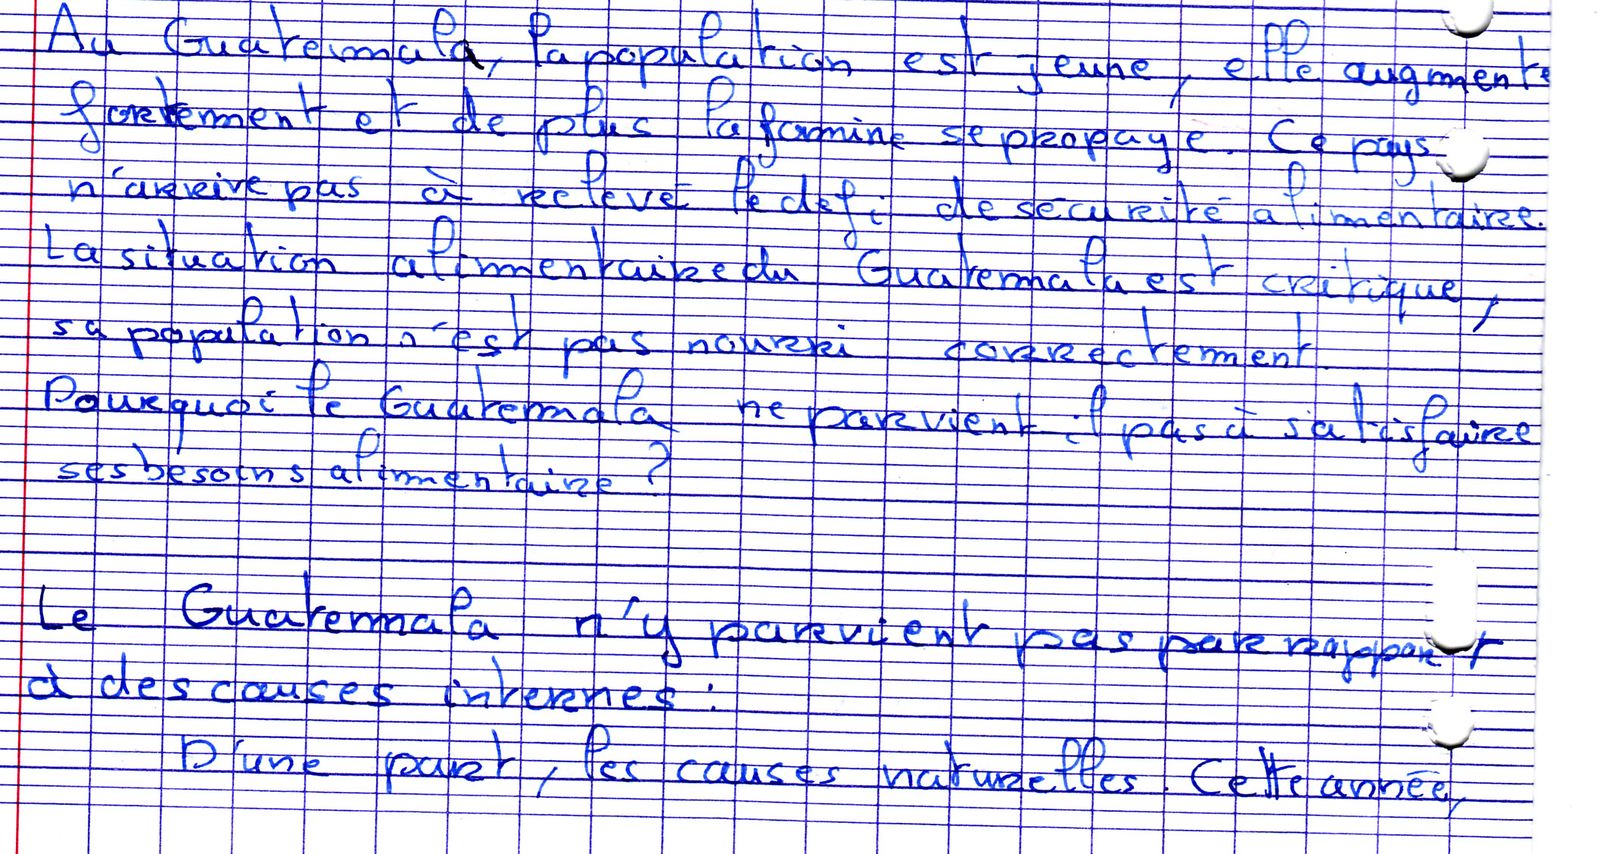 Au Guatemala, la population est jeune, elle augmente
fortement et de plus la famine se propage. Ce pays
n'arrive pas à relevé le defi de sécurité alimentaire.
La situation alimentaire du Guatemala est critique,
sa population n'est pas nourri correctement.
Pourquoi le Guatemala ne parvient il pas à satisfaire
ses besoins alimentaire ?
Le Guatemala n'y parvient pas par rapport
à des causes internes :
D'une part, les causes naturelles. Cette année,